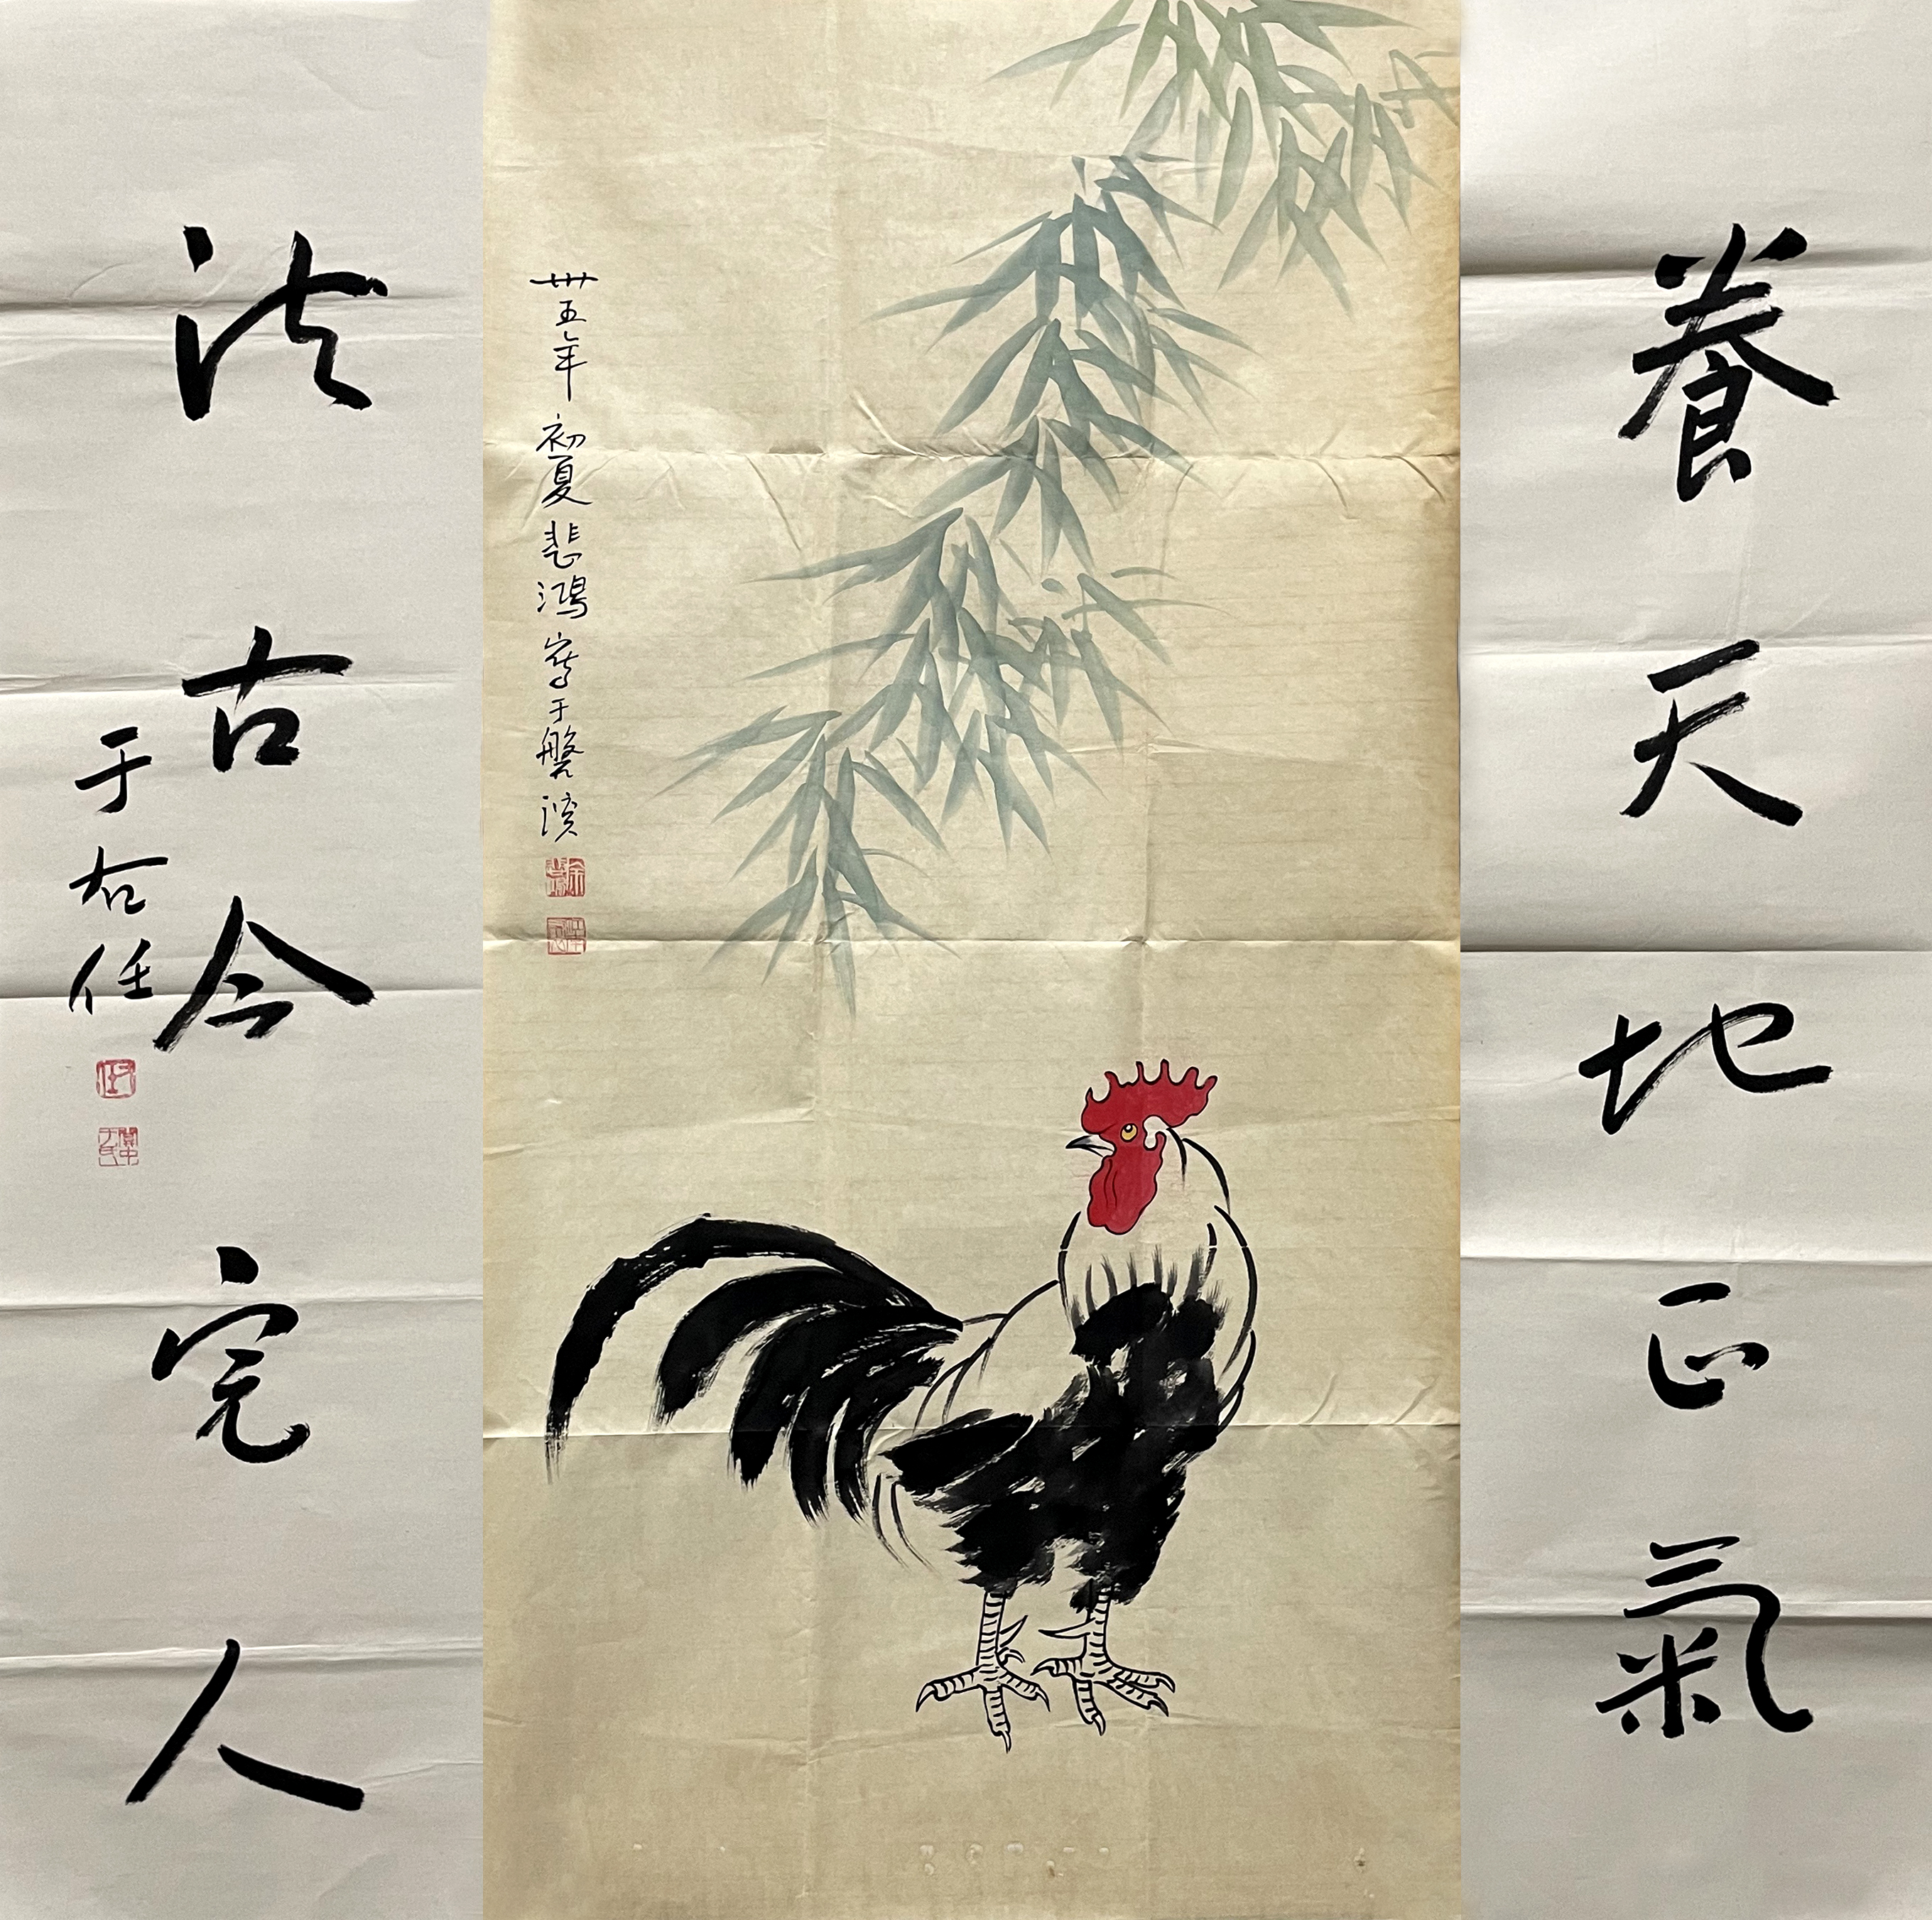 養天地正氣
卅五年初夏悲鴻寫于磐溪
法古今完人
于右任